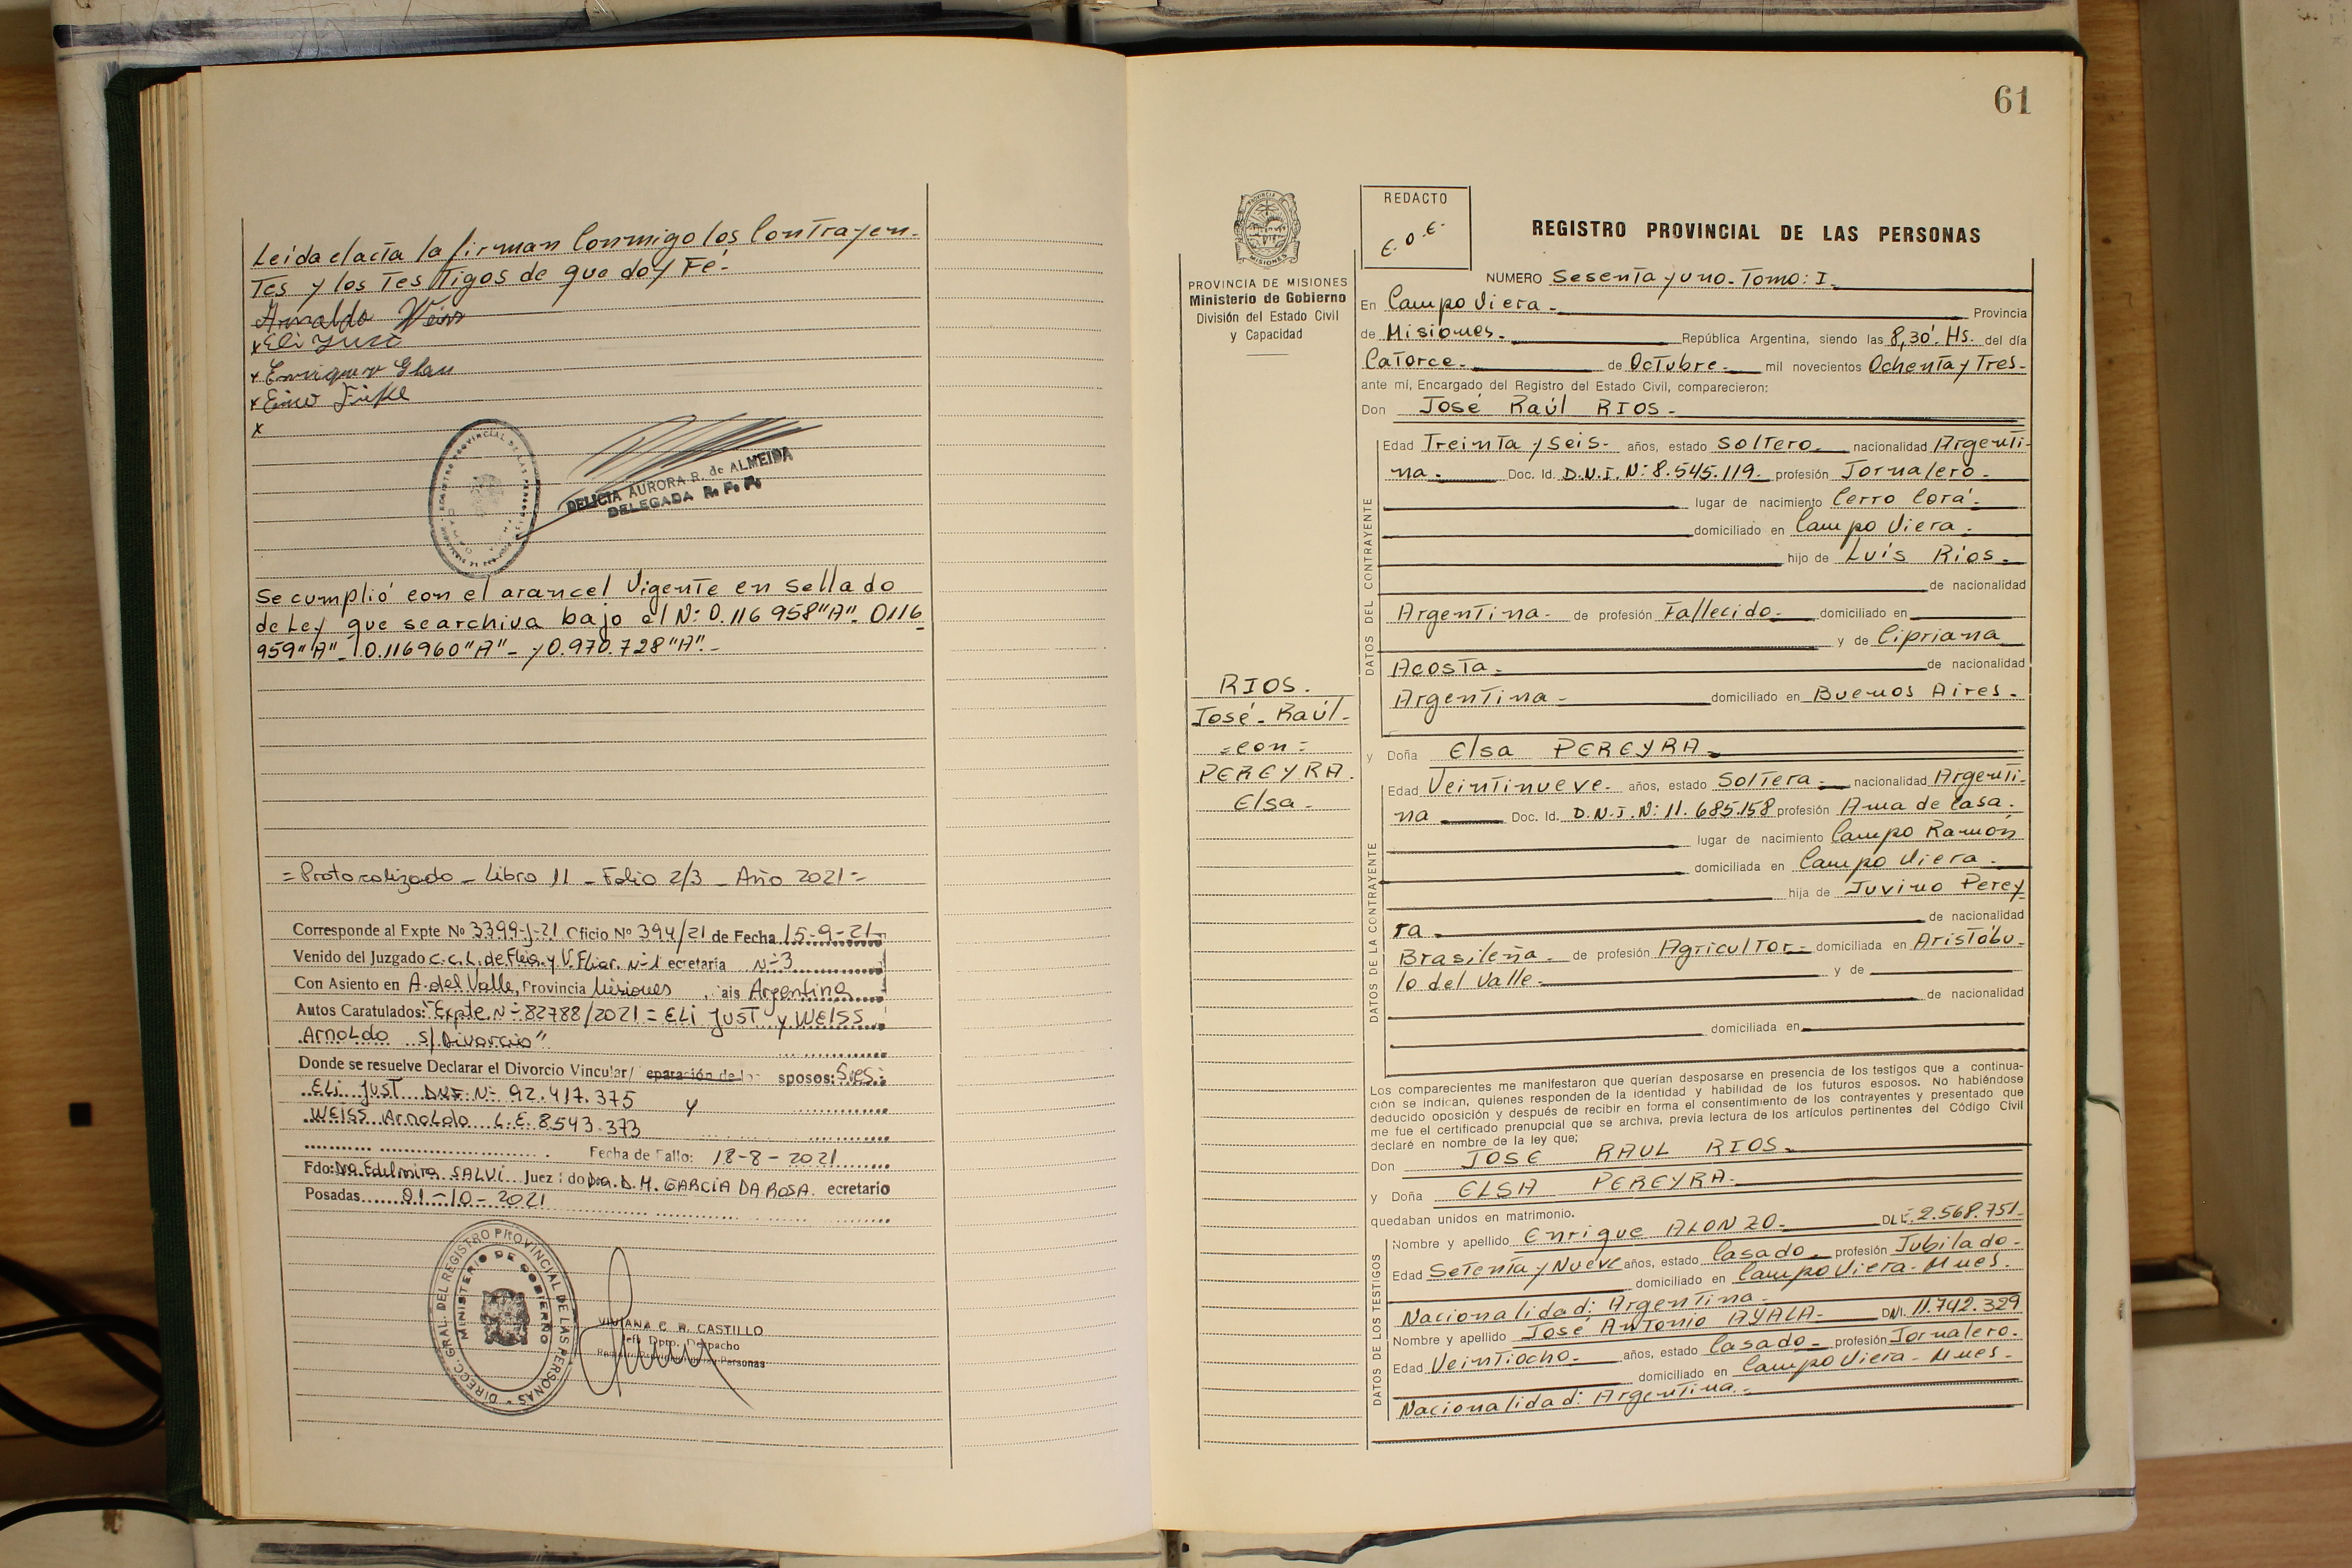 Leida el acta la firman Conmigo los Contrayen-
Tes y los Tes Tigos de que doy Fé-
Arnaldo Weiss
x Eli Just
x Enrique Glau
x
REGISTRO PROVINCIAL DE LAS PERSONAS
DELICIA AURORA R. de ALMEIDA
DELEGADA R. P. P.
Se cumplió con el arancel Vigente en Sellado
de Ley que se archiva bajo el N: 0.116 958"A"- 0116
959"A"- 0.116960"A"- y 0.970.728"A"-
= Protocolizado - Libro 11 - Folio 2/3 - Año 2021 =
Corresponde al Expte Nº 3399-J-21 Oficio Nº 394/21 de Fecha 15-9-21
Venido del Juzgado C.C.L. de Flia. y V. Fliar. Nº1 ecretaria Nº3
Con Asiento en A. del Valle, Provincia Misiones, ais Argentina
Autos Caratulados: "Expte. Nº 82788/2021 = ELI JUST y WEISS
Arnoldo s/Divorcio"
Donde se resuelve Declarar el Divorcio Vincular/ eparación de lo sposos: Sres.:
ELI JUST DNI Nº 92.417.375 y
WEISS Arnoldo L.E. 8.543.373
Fecha de Fallo: 18-8-2021
Fdo: Dra. Edelmira SALVI Juez: do Dra. D. M. GARCIA DA ROSA. ecretario
Posadas 01-10-2021
DIREC. GRAL. DEL REGISTRO PROVINCIAL DE LAS PERSONAS
MINISTERIO DE GOBIERNO
VIVIANA C. R. CASTILLO
Jefa Dpto. Despacho
Registro Provincial de las Personas
61
PROVINCIA DE MISIONES
PROVINCIA DE MISIONES
Ministerio de Gobierno
División del Estado Civil
y Capacidad
RIOS.
José - Raúl -
= con =
PEREYRA.
Elsa -
REDACTO
E. O. E.
REGISTRO PROVINCIAL DE LAS PERSONAS
NUMERO Sesenta y uno - Tomo: I.
En Campo Viera - Provincia
de Misiones. República Argentina, siendo las 8,30' Hs. del día
Catorce. de Octubre. mil novecientos Ochenta y Tres -
ante mí, Encargado del Registro del Estado Civil, comparecieron:
Don José Raúl RIOS -
DATOS DEL CONTRAYENTE
Edad Treinta y Seis - años, estado Soltero nacionalidad Argenti-
na. Doc. Id. D.N.I. N: 8.545.119. profesión Jornalero -
lugar de nacimiento Cerro Corá -
domiciliado en Campo Viera.
hijo de Luís Ríos.
de nacionalidad
Argentina - de profesión Fallecido domiciliado en
y de Cipriana
Acosta. de nacionalidad
Argentina - domiciliado en Buenos Aires -
y Doña Elsa PEREYRA
DATOS DE LA CONTRAYENTE
Edad Veintinueve - años, estado Soltera. nacionalidad Argenti-
na Doc. Id. D.N.I. N: 11.685.158 profesión Ama de Casa.
lugar de nacimiento Campo Ramón
domiciliada en Campo Viera -
hija de Juvino Perey
ra de nacionalidad
Brasileña - de profesión Agricultor - domiciliada en Aristóbu-
lo del Valle - y de
de nacionalidad
domiciliada en
Los comparecientes me manifestaron que querían desposarse en presencia de los testigos que a continua-
ción se indican, quienes responden de la identidad y habilidad de los futuros esposos. No habiéndose
deducido oposición y después de recibir en forma el consentimiento de los contrayentes y presentado que
me fue el certificado prenupcial que se archiva, previa lectura de los artículos pertinentes del Código Civil
declaré en nombre de la ley que;
Don JOSE RAUL RIOS.
y Doña ELSA PEREYRA -
quedaban unidos en matrimonio.
DATOS DE LOS TESTIGOS
Nombre y apellido Enrique ALONZO - DLE. 2.568.751
Edad Setenta y Nueve años, estado Casado - profesión Jubilado -
domiciliado en Campo Viera - Mnes.
Nacionalidad: Argentina -
Nombre y apellido José Antonio AYALA - DNI. 11.742.329
Edad Veintiocho - años, estado Casado - profesión Jornalero.
domiciliado en Campo Viera - Mnes -
Nacionalidad: Argentina -